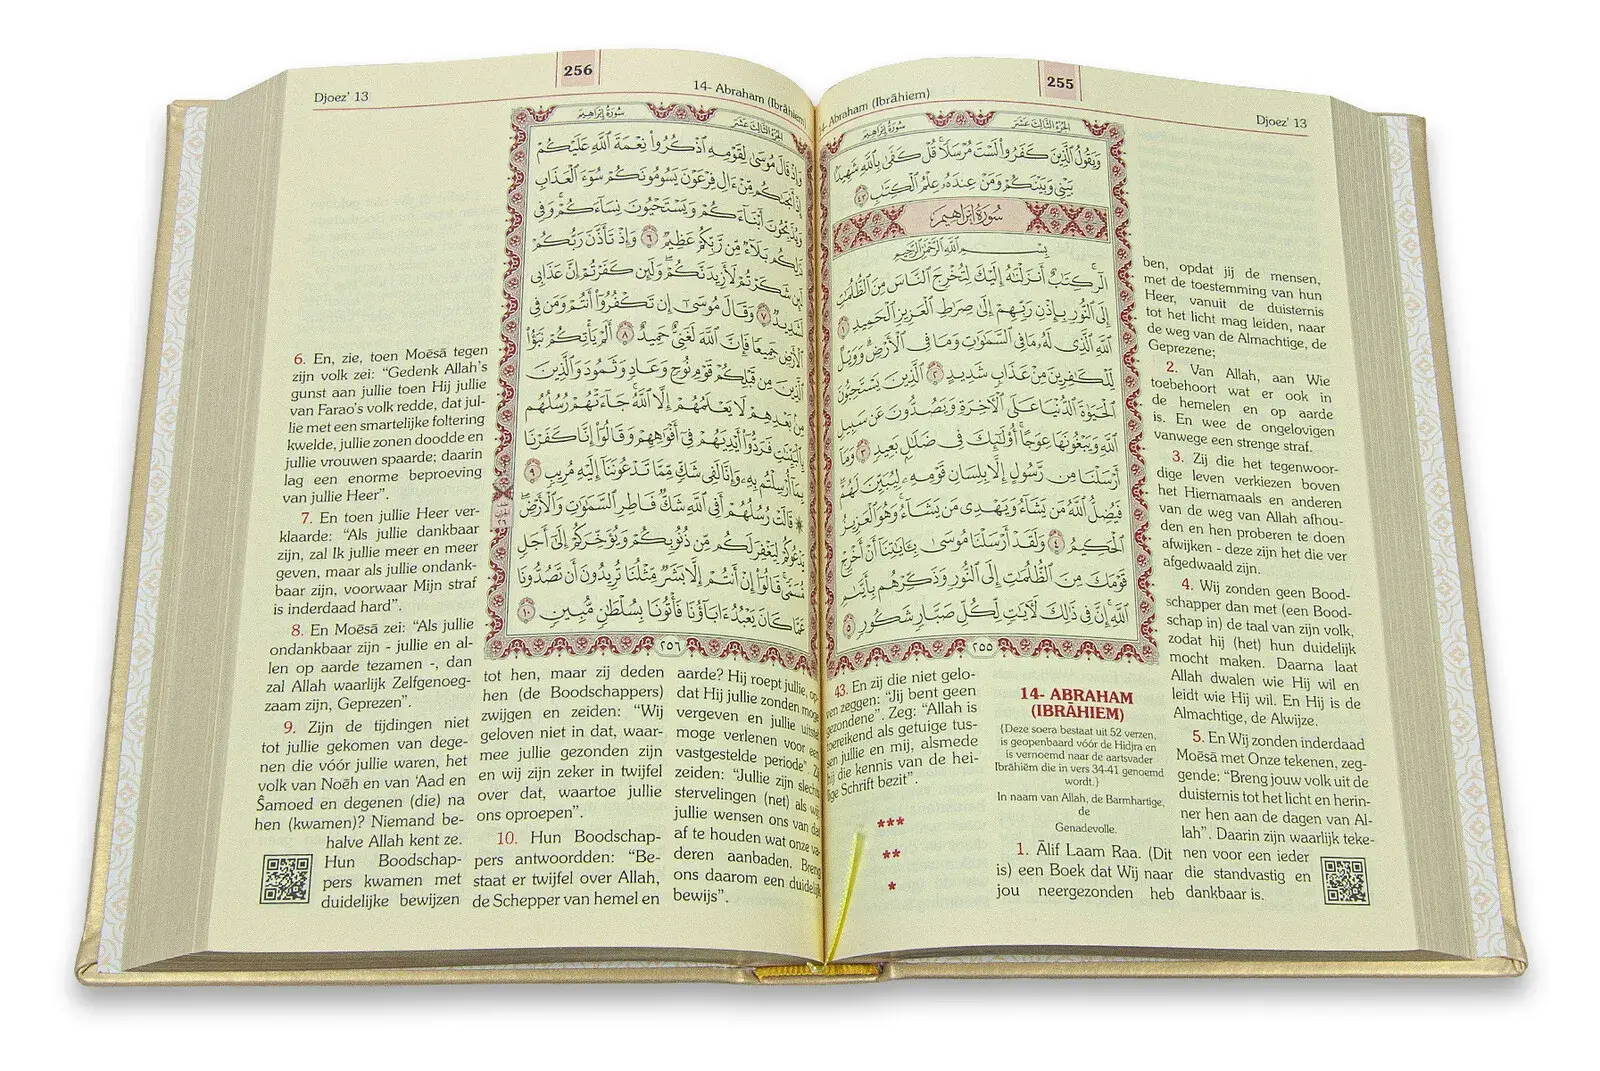 255
14- Abraham (Ibrāhiem)
Djoez' 13
الجزء الثالث عشر
سورة إبراهيم
وَيَقُولُ الَّذِينَ كَفَرُوا لَسْتَ مُرْسَلًا قُلْ كَفَى بِاللَّهِ شَهِيدًا
بَيْنِي وَبَيْنَكُمْ وَمَنْ عِندَهُ عِلْمُ الْكِتَابِ ٤٣
سُورَةُ إِبْرَاهِيمَ
بِسْمِ اللَّهِ الرَّحْمَٰنِ الرَّحِيمِ
الر كِتَابٌ أَنزَلْنَاهُ إِلَيْكَ لِتُخْرِجَ النَّاسَ مِنَ الظُّلُمَاتِ
إِلَى النُّورِ بِإِذْنِ رَبِّهِمْ إِلَى صِرَاطِ الْعَزِيزِ الْحَمِيدِ ١
اللَّهِ الَّذِي لَهُ مَا فِي السَّمَاوَاتِ وَمَا فِي الْأَرْضِ وَوَيْلٌ
لِّلْكَافِرِينَ مِنْ عَذَابٍ شَدِيدٍ ٢ الَّذِينَ يَسْتَحِبُّونَ
الْحَيَاةَ الدُّنْيَا عَلَى الْآخِرَةِ وَيَصُدُّونَ عَن سَبِيلِ
اللَّهِ وَيَبْغُونَهَا عِوَجًا أُولَٰئِكَ فِي ضَلَالٍ بَعِيدٍ ٣ وَمَا
أَرْسَلْنَا مِن رَّسُولٍ إِلَّا بِلِسَانِ قَوْمِهِ لِيُبَيِّنَ لَهُمْ
فَيُضِلُّ اللَّهُ مَن يَشَاءُ وَيَهْدِي مَن يَشَاءُ وَهُوَ الْعَزِيزُ
الْحَكِيمُ ٤ وَلَقَدْ أَرْسَلْنَا مُوسَى بِآيَاتِنَا أَنْ أَخْرِجْ
قَوْمَكَ مِنَ الظُّلُمَاتِ إِلَى النُّورِ وَذَكِّرْهُم بِأَيَّامِ
اللَّهِ إِنَّ فِي ذَٰلِكَ لَآيَاتٍ لِّكُلِّ صَبَّارٍ شَكُورٍ ٥
٢٥٥
43. En zij die niet gelo-
ven zeggen: “Jij bent geen
gezondene”. Zeg: “Allah is
toereikend als getuige tus-
sen jullie en mij, alsmede
hij die kennis van de hei-
lige Schrift bezit”.
***
**
*
14- ABRAHAM
(IBRĀHIEM)
(Deze soera bestaat uit 52 verzen,
is geopenbaard vóór de Hidjra en
is vernoemd naar de aartsvader
Ibrāhiem die in vers 34-41 genoemd
wordt.)
In naam van Allah, de Barmhartige,
de
Genadevolle.
1. Ālif Laam Raa. (Dit
is) een Boek dat Wij naar
jou neergezonden heb
ben, opdat jij de mensen,
met de toestemming van hun
Heer, vanuit de duisternis
tot het licht mag leiden, naar
de weg van de Almachtige, de
Geprezene;
2. Van Allah, aan Wie
toebehoort wat er ook in
de hemelen en op aarde
is. En wee de ongelovigen
vanwege een strenge straf.
3. Zij die het tegenwoor-
dige leven verkiezen boven
het Hiernamaals en anderen
van de weg van Allah afhou-
den en hen proberen te doen
afwijken - deze zijn het die ver
afgedwaald zijn.
4. Wij zonden geen Bood-
schapper dan met (een Bood-
schap in) de taal van zijn volk,
zodat hij (het) hun duidelijk
mocht maken. Daarna laat
Allah dwalen wie Hij wil en
leidt wie Hij wil. En Hij is de
Almachtige, de Alwijze.
5. En Wij zonden inderdaad
Moēsā met Onze tekenen, zeg-
gende: “Breng jouw volk uit de
duisternis tot het licht en herin-
ner hen aan de dagen van Al-
lah”. Daarin zijn waarlijk teke-
nen voor een ieder
die standvastig en
dankbaar is.
256
Djoez' 13
14- Abraham (Ibrāhiem)
الجزء الثالث عشر
سورة إبراهيم
وَإِذْ قَالَ مُوسَى لِقَوْمِهِ اذْكُرُوا نِعْمَةَ اللَّهِ عَلَيْكُمْ
إِذْ أَنجَاكُم مِّنْ آلِ فِرْعَوْنَ يَسُومُونَكُمْ سُوءَ الْعَذَابِ
وَيُذَبِّحُونَ أَبْنَاءَكُمْ وَيَسْتَحْيُونَ نِسَاءَكُمْ وَفِي
ذَٰلِكُم بَلَاءٌ مِّن رَّبِّكُمْ عَظِيمٌ ٦ وَإِذْ تَأَذَّنَ رَبُّكُمْ
لَئِن شَكَرْتُمْ لَأَزِيدَنَّكُمْ وَلَئِن كَفَرْتُمْ إِنَّ عَذَابِي
لَشَدِيدٌ ٧ وَقَالَ مُوسَى إِن تَكْفُرُوا أَنتُمْ وَمَن فِي
الْأَرْضِ جَمِيعًا فَإِنَّ اللَّهَ لَغَنِيٌّ حَمِيدٌ ٨ أَلَمْ يَأْتِكُمْ نَبَؤُا
الَّذِينَ مِن قَبْلِكُمْ قَوْمِ نُوحٍ وَعَادٍ وَثَمُودَ وَالَّذِينَ
مِن بَعْدِهِمْ لَا يَعْلَمُهُمْ إِلَّا اللَّهُ جَاءَتْهُمْ رُسُلُهُم
بِالْبَيِّنَاتِ فَرَدُّوا أَيْدِيَهُمْ فِي أَفْوَاهِهِمْ وَقَالُوا إِنَّا كَفَرْنَا
بِمَا أُرْسِلْتُم بِهِ وَإِنَّا لَفِي شَكٍّ مِّمَّا تَدْعُونَنَا إِلَيْهِ مُرِيبٍ ٩
قَالَتْ رُسُلُهُمْ أَفِي اللَّهِ شَكٌّ فَاطِرِ السَّمَاوَاتِ وَالْأَرْضِ
يَدْعُوكُمْ لِيَغْفِرَ لَكُم مِّن ذُنُوبِكُمْ وَيُؤَخِّرَكُمْ إِلَى أَجَلٍ
مُّسَمًّى قَالُوا إِنْ أَنتُمْ إِلَّا بَشَرٌ مِّثْلُنَا تُرِيدُونَ أَن تَصُدُّونَا
عَمَّا كَانَ يَعْبُدُ آبَاؤُنَا فَأْتُونَا بِسُلْطَانٍ مُّبِينٍ ١٠
٢٥٦
6. En, zie, toen Moēsā tegen
zijn volk zei: “Gedenk Allah’s
gunst aan jullie toen Hij jullie
van Farao’s volk redde, dat jul-
lie met een smartelijke foltering
kwelde, jullie zonen doodde en
jullie vrouwen spaarde; daarin
lag een enorme beproeving
van jullie Heer”.
7. En toen jullie Heer ver-
klaarde: “Als jullie dankbaar
zijn, zal Ik jullie meer en meer
geven, maar als jullie ondank-
baar zijn, voorwaar Mijn straf
is inderdaad hard”.
8. En Moēsā zei: “Als jullie
ondankbaar zijn - jullie en al-
len op aarde tezamen -, dan
zal Allah waarlijk Zelfgenoeg-
zaam zijn, Geprezen”.
9. Zijn de tijdingen niet
tot jullie gekomen van dege-
nen die vóór jullie waren, het
volk van Noēh en van ‘Aad en
Ŝamoed en degenen (die) na
hen (kwamen)? Niemand be-
halve Allah kent ze.
Hun Boodschap-
pers kwamen met
duidelijke bewijzen
tot hen, maar zij deden
hen (de Boodschappers)
zwijgen en zeiden: “Wij
geloven niet in dat, waar-
mee jullie gezonden zijn
en wij zijn zeker in twijfel
over dat, waartoe jullie
ons oproepen”.
10. Hun Boodschap-
pers antwoordden: “Be-
staat er twijfel over Allah,
de Schepper van hemel en
aarde? Hij roept jullie, op-
dat Hij jullie zonden moge
vergeven en jullie uitstel
moge verlenen voor een
vastgestelde periode”. Zij
zeiden: “Jullie zijn slechts
stervelingen (net) als wij;
jullie wensen ons van dat
af te houden wat onze va-
deren aanbaden. Breng
ons daarom een duidelijk
bewijs”.